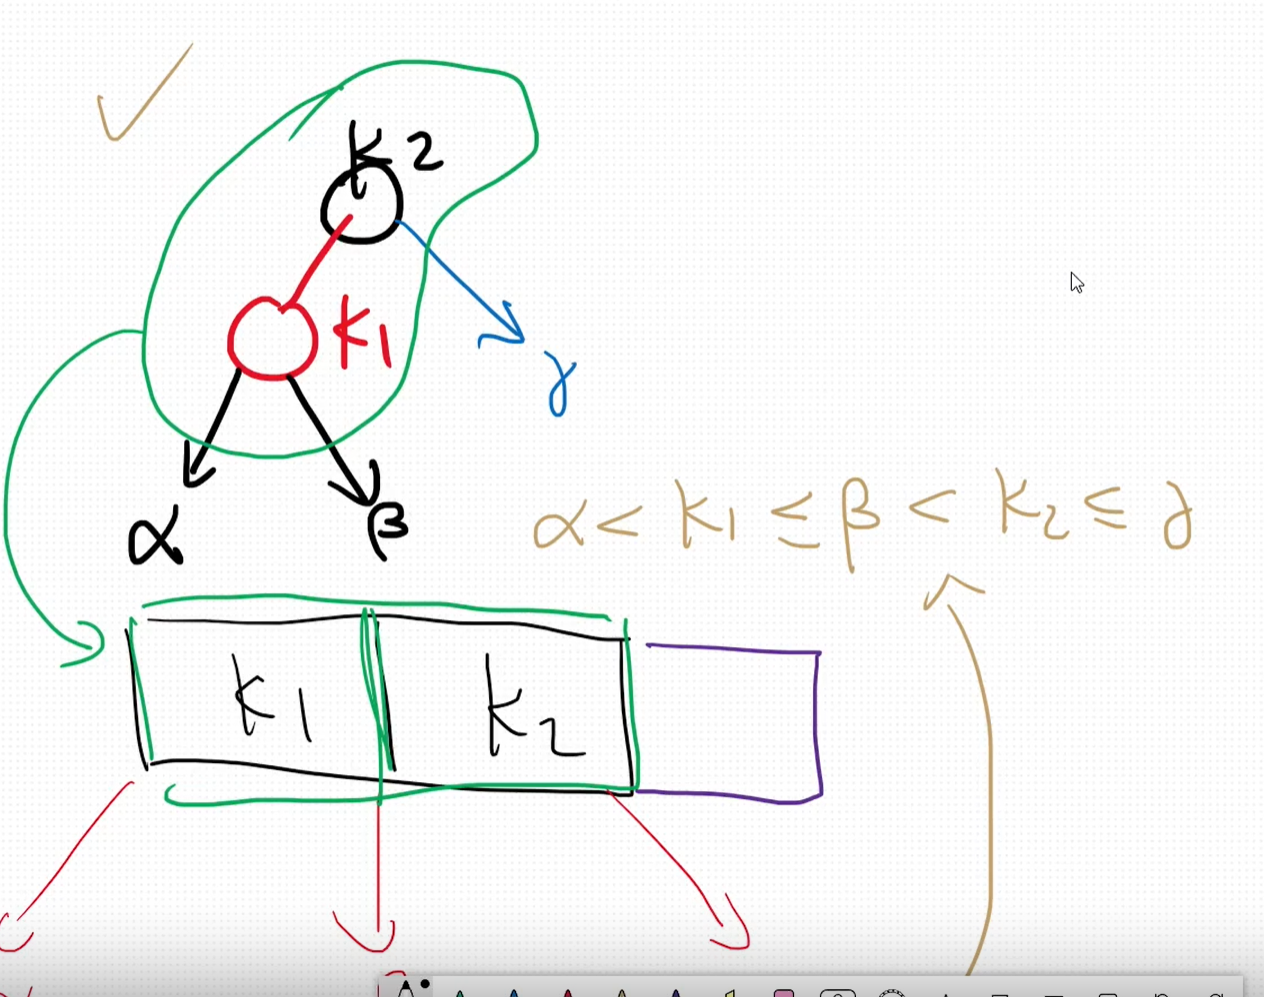 k2
k1
γ
α
β
α < k1 ≤ β < k2 ≤ γ
k1 k2